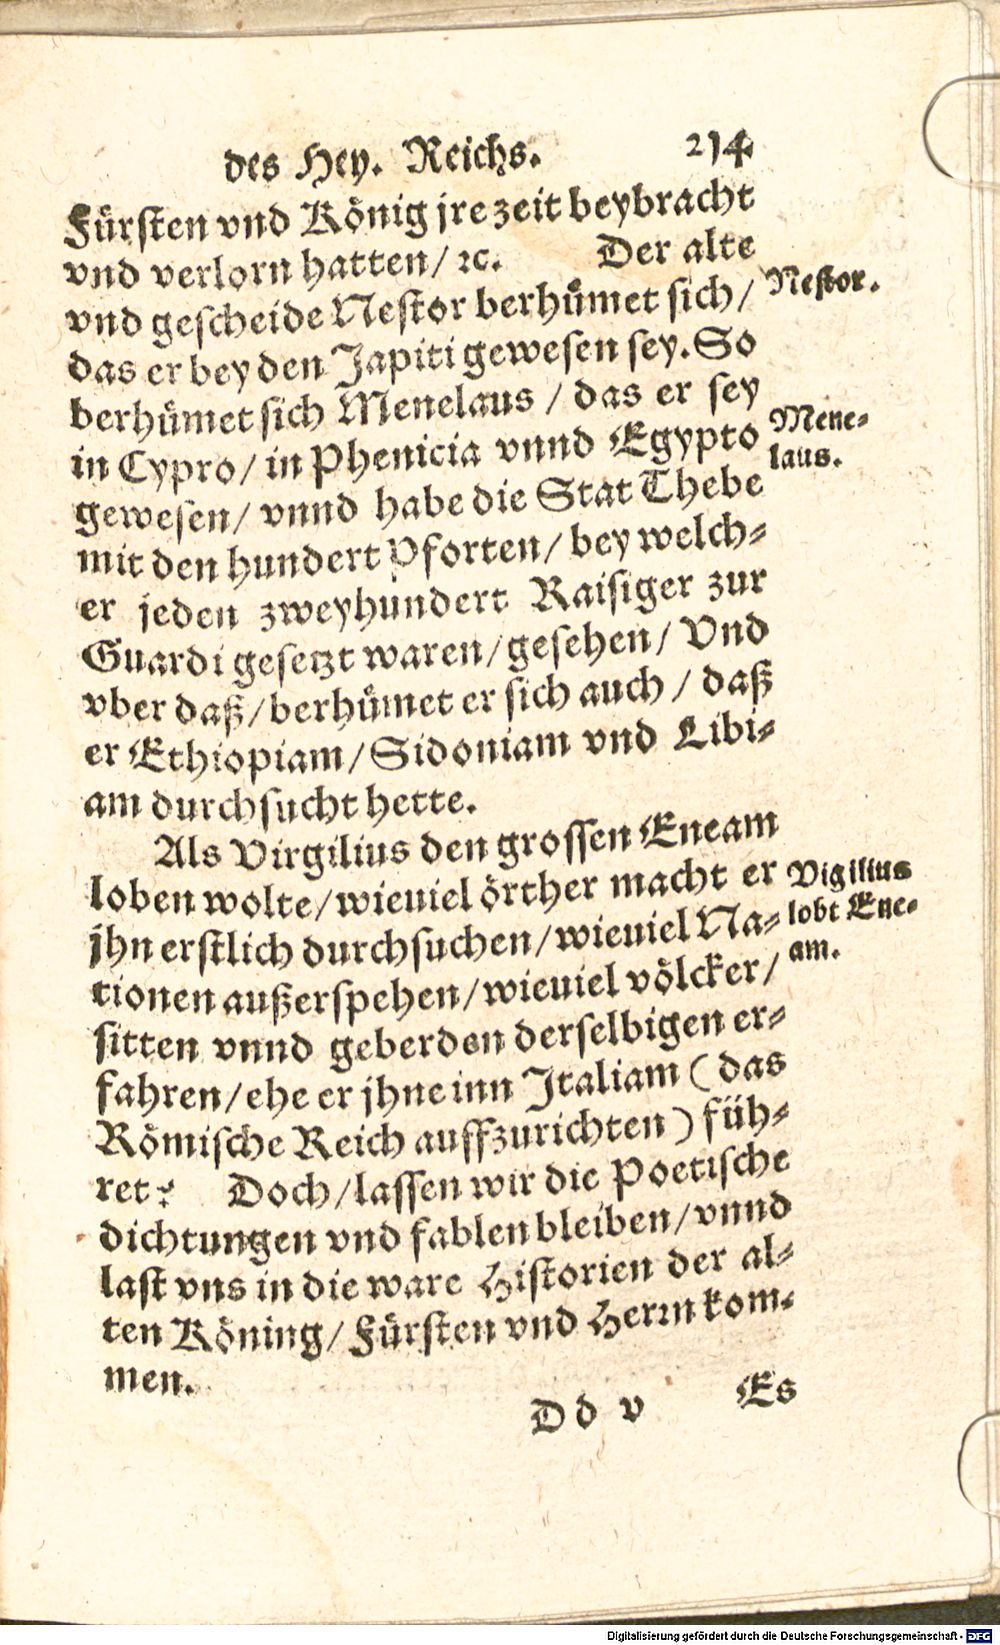 des Hey. Reichs. 214.
Fürsten vnd König jre zeit beybracht
vnd verlorn hatten/ ꝛc. Der alte
vnd gescheide Nestor berhümet sich/
Nestor.
das er bey den Japiti gewesen sey. So
berhümet sich Menelaus / das er sey
in Cypro/ in Phenicia vnnd Egypto
Mene-
laus.
gewesen/ vnnd habe die Stat Thebe
mit den hundert Pforten/ bey welch-
er jeden zweyhundert Raisiger zur
Guardi gesetzt waren/ gesehen/ Vnd
vber daß/ berhümet er sich auch / daß
er Ethiopiam/ Sidoniam vnd Libi-
am durchsucht hette.
Als Virgilius den grossen Eneam
loben wolte/ wieuiel örther macht er
jhn erstlich durchsuchen/ wieuiel Na-
tionen außerspehen/ wieuiel völcker/
Vigilius
lobt Ene-
am.
sitten vnnd geberden derselbigen er-
fahren/ ehe er jhne inn Italiam ( das
Römische Reich auffzurichten ) füh-
ret? Doch/ lassen wir die Poetische
dichtungen vnd fablen bleiben/ vnnd
last vns in die ware Historien der al-
ten Köning/ Fürsten vnd Herrn kom-
men.
D d v Es
Digitalisierung gefördert durch die Deutsche Forschungsgemeinschaft - DFG